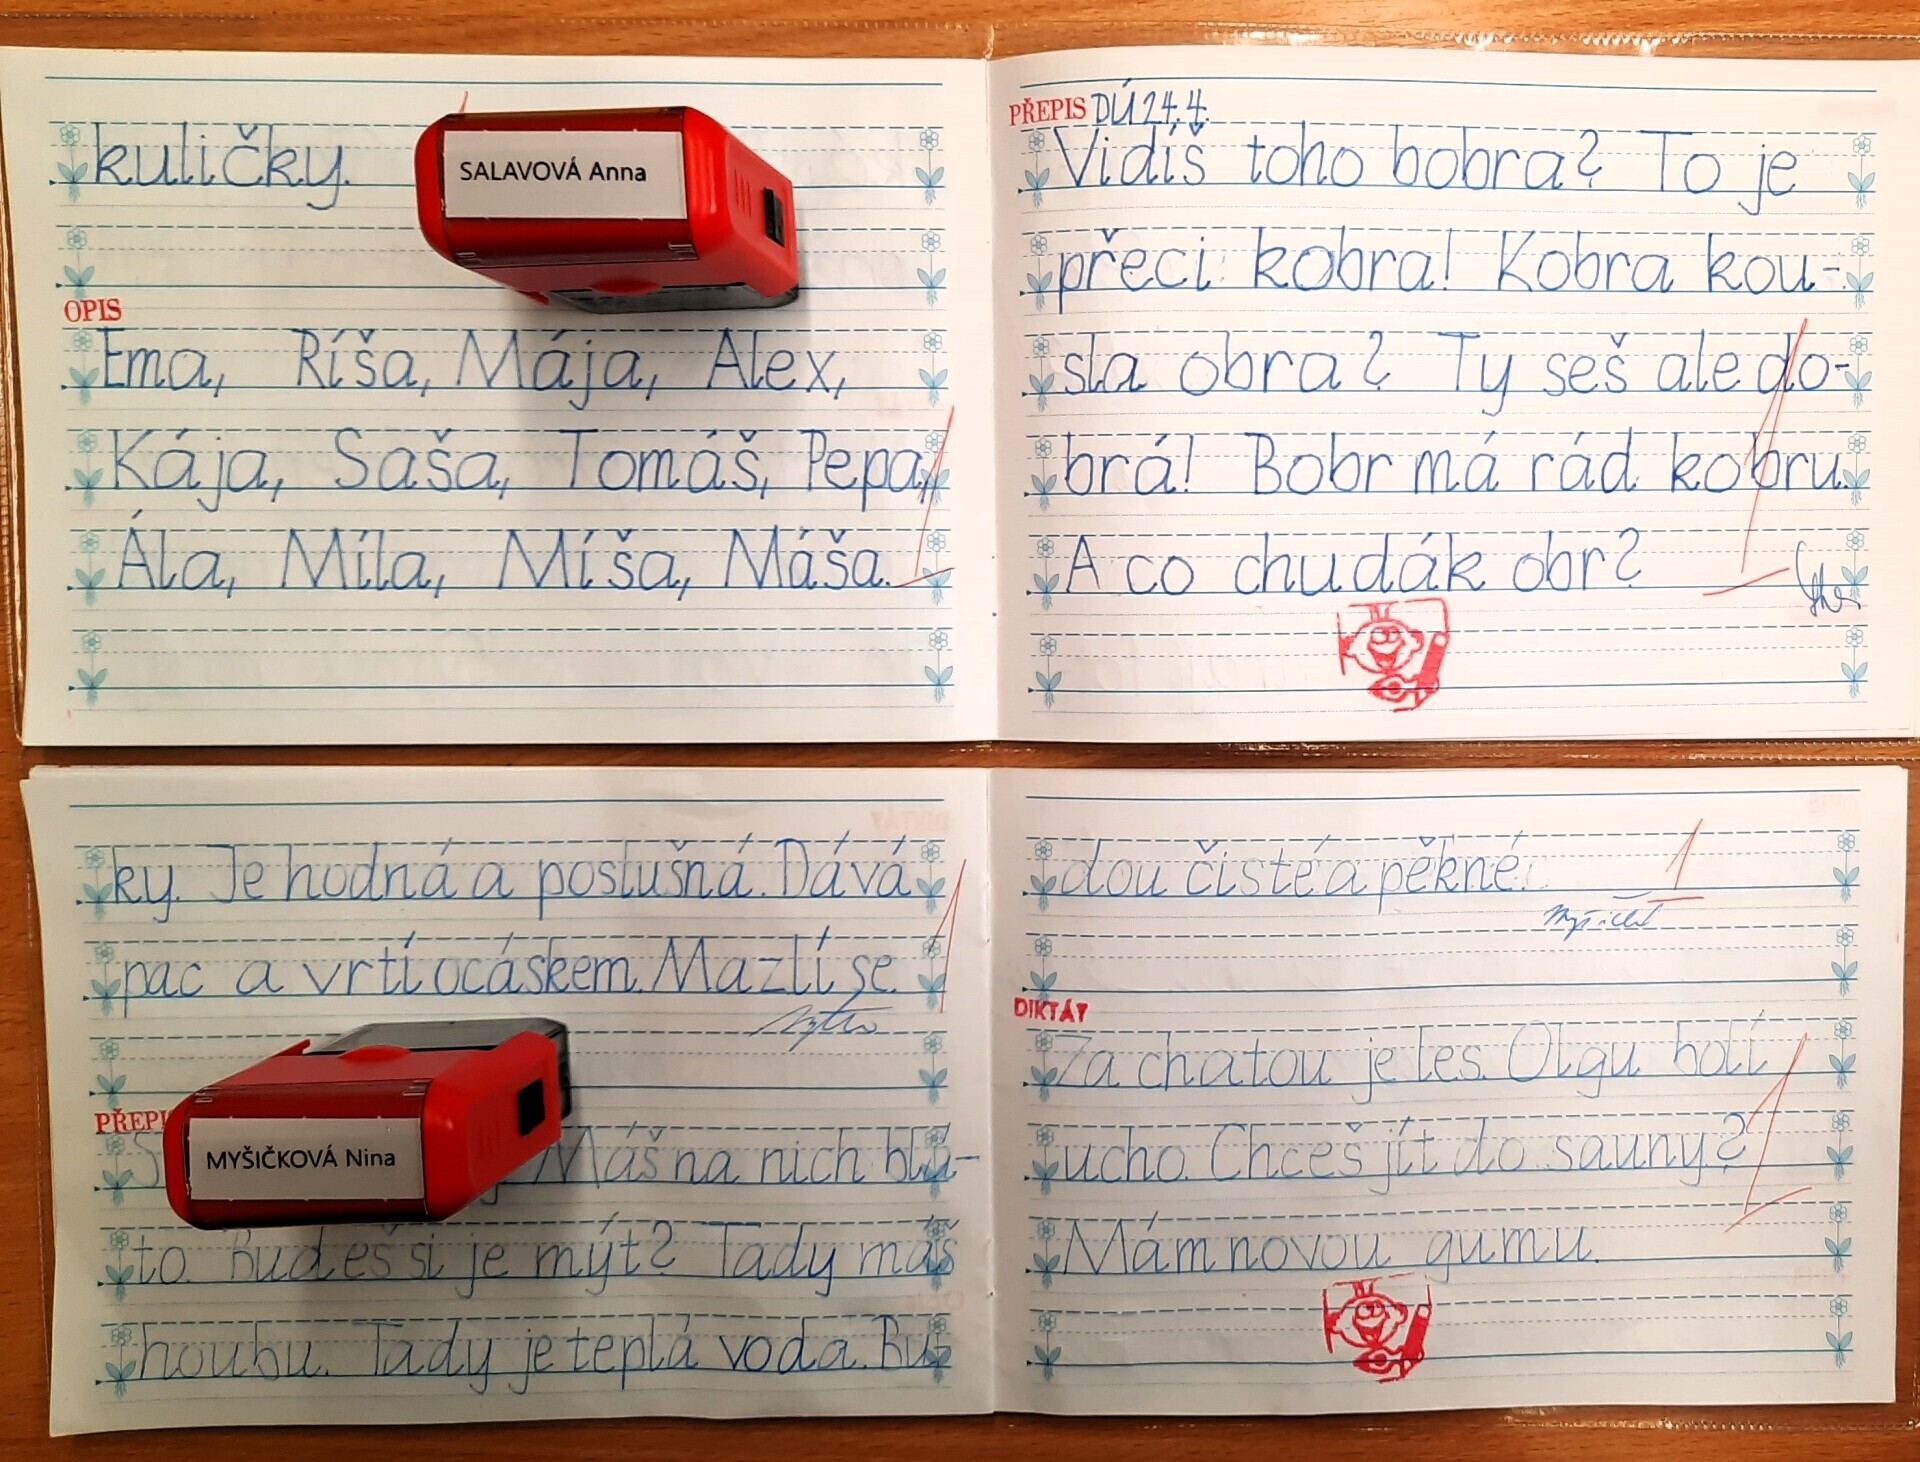 kuličky.
SALAVOVÁ Anna
OPIS
Ema, Ríša, Mája, Alex,
Kája, Saša, Tomáš, Pepa,
Ála, Míla, Míša, Máša.
PŘEPIS DÚ 24.4.
Vidíš toho bobra? To je
přeci kobra! Kobra kou-
sla obra? Ty seš ale do-
brá! Bobr má rád kobru.
A co chudák obr?
ky. Je hodná a poslušná. Dává
pac a vrtí ocáskem. Mazlí se.
PŘEPI
MYŠIČKOVÁ Nina
Máš na nich blá-
to. Budeš si je mýt? Tady máš
houbu. Tady je teplá voda. Bu-
dou čisté a pěkné.
1
DIKTÁT
Za chatou je les. Olgu bolí
ucho. Chceš jít do sauny?
Mám novou gumu.